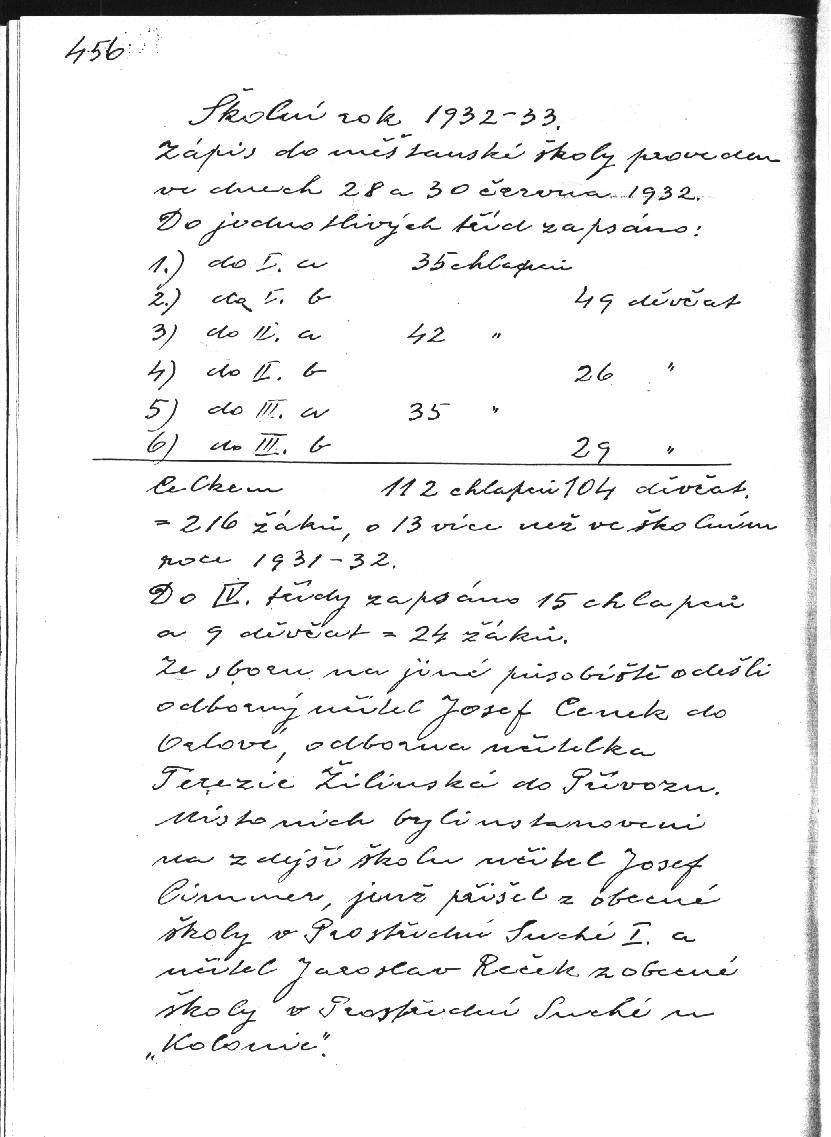 456
Školní rok 1932-33.
Zápis do měšťanské školy proveden
ve dnech 28 a 30 června 1932.
Do jednotlivých tříd zapsáno:
1.) do I. a 35 chlapců
2.) do I. b 49 děvčat
3) do II. a 42 "
4) do II. b 26 "
5) do III. a 35 "
6) do III. b 29 "
Celkem 112 chlapců 104 děvčat.
= 216 žáků, o 13 více než ve školním
roce 1931-32.
Do IV. třídy zapsáno 15 chlapců
a 9 děvčat = 24 žáků.
Ze sboru na jiné působiště odešli
odborný učitel Josef Cenek do
Orlové, odborná učitelka
Terezie Žilinská do Přívozu.
Místo nich byli ustanoveni
na zdejší školu učitel Josef
Cimmer, jenž přišel z obecné
školy v Prostřední Suché I. a
učitel Jaroslav Reček z obecné
školy v Prostřední Suché u
„Kolonie".